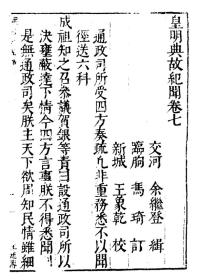 皇明典故紀聞卷七
交河　余繼登　緝
臨朐　馮琦　訂
新城　王象乾　校
通政司所受四方奏疏凡非重務悉不以聞
徑送六科
成祖知之召參議賀銀等責曰設通政司所以
決壅蔽達下情今四方言事朕不得悉聞
是無通政司矣朕主天下欲周知民情雖細